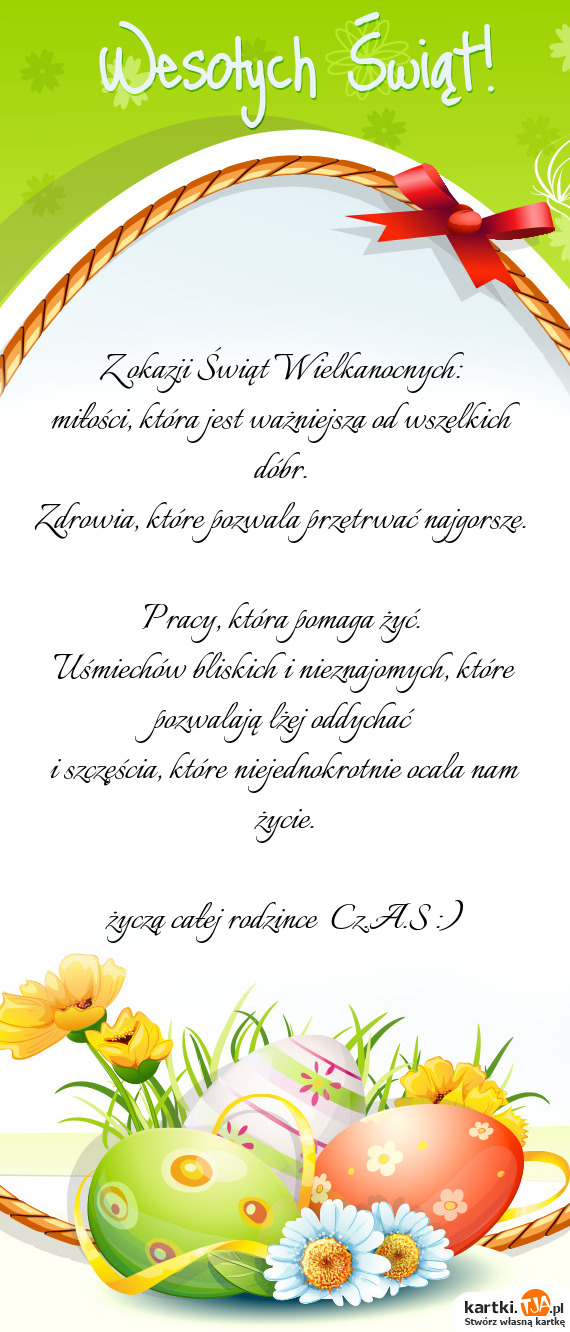 Wesołych Świąt!
Z okazji Świąt Wielkanocnych:
miłości, która jest ważniejsza od wszelkich
dóbr.
Zdrowia, które pozwala przetrwać najgorsze.
Pracy, która pomaga żyć.
Uśmiechów bliskich i nieznajomych, które
pozwalają lżej oddychać
i szczęścia, które niejednokrotnie ocala nam
życie.
życzą całej rodzince Cz.A.S :)
kartki.TJA.pl
Stwórz własną kartkę